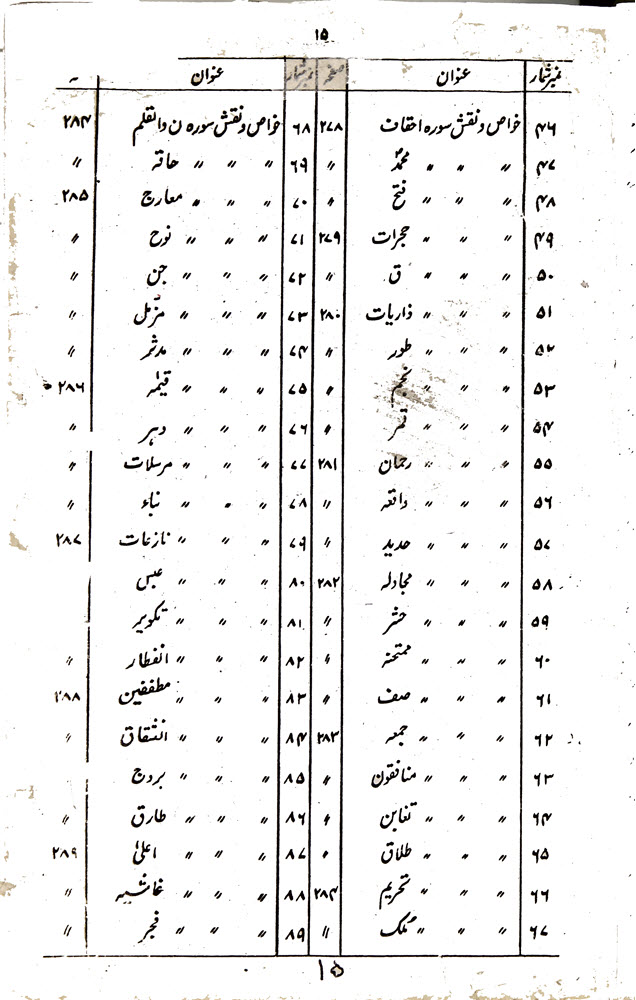 ۱۵
نمبر شمار عنوان صفحہ نمبر شمار عنوان
۴۶ خواص و نقش سورہ احقاف ۲۷۸ ۶۸ خواص و نقش سورہ ن والقلم ۲۸۴
۴۷ 〃 〃 〃 محمدؐ 〃 ۶۹ 〃 〃 〃 حاقہ 〃
۴۸ 〃 〃 〃 فتح 〃 ۷۰ 〃 〃 〃 معارج ۲۸۵
۴۹ 〃 〃 〃 حجرات ۲۷۹ ۷۱ 〃 〃 〃 نوح 〃
۵۰ 〃 〃 〃 ق 〃 ۷۲ 〃 〃 〃 جن 〃
۵۱ 〃 〃 〃 ذاریات ۲۸۰ ۷۳ 〃 〃 〃 مزّمل 〃
۵۲ 〃 〃 〃 طور 〃 ۷۴ 〃 〃 〃 مدثر 〃
۵۳ 〃 〃 〃 نجم 〃 ۷۵ 〃 〃 〃 قیٰمہ ۲۸۶
۵۴ 〃 〃 〃 قمر 〃 ۷۶ 〃 〃 〃 دہر 〃
۵۵ 〃 〃 〃 رحمان ۲۸۱ ۷۷ 〃 〃 〃 مرسلات 〃
۵۶ 〃 〃 〃 واقعہ 〃 ۷۸ 〃 〃 〃 نباء 〃
۵۷ 〃 〃 〃 حدید 〃 ۷۹ 〃 〃 〃 نازعات ۲۸۷
۵۸ 〃 〃 〃 مجادلہ ۲۸۲ ۸۰ 〃 〃 〃 عبس
۵۹ 〃 〃 〃 حشر 〃 ۸۱ 〃 〃 〃 تکویر
۶۰ 〃 〃 〃 ممتحنہ 〃 ۸۲ 〃 〃 〃 انفطار 〃
۶۱ 〃 〃 〃 صف 〃 ۸۳ 〃 〃 〃 مطففین ۲۸۸
۶۲ 〃 〃 〃 جمعہ ۲۸۳ ۸۴ 〃 〃 〃 انشقاق 〃
۶۳ 〃 〃 〃 منافقون 〃 ۸۵ 〃 〃 〃 بروج
۶۴ 〃 〃 〃 تغابن 〃 ۸۶ 〃 〃 〃 طارق 〃
۶۵ 〃 〃 〃 طلاق 〃 ۸۷ 〃 〃 〃 اعلیٰ ۲۸۹
۶۶ 〃 〃 〃 تحریم ۲۸۴ ۸۸ 〃 〃 〃 غاشیہ 〃
۶۷ 〃 〃 〃 ملک 〃 ۸۹ 〃 〃 〃 فجر 〃
۱۵